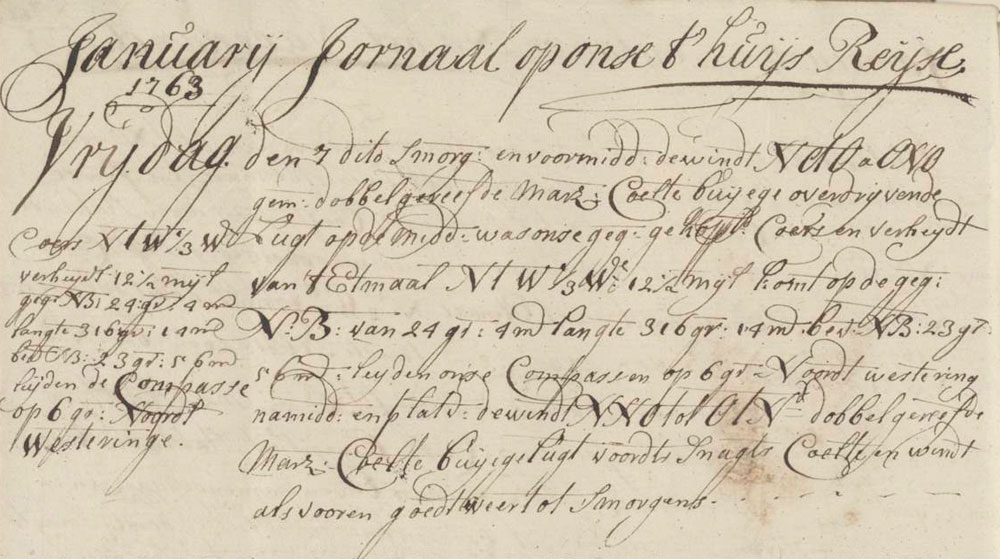 Januarij Jornaal op onse t'huijs Reijse.
1763
Vrijdag. den 7 dito Smorg: en voormidd: de windt NOtO a ONO
gem: dobbel gereefde Marz: Coelte buijege overdrijvende
Lugt op de midd: was onse geg: gekopp: Coers en verheijdt
van 't Etmaal NtW 1/3 W: 12 1/2 mijl komt op de geg:
N: B: van 24 gr: 4 m langte 316 gr: 14 m bev: NB: 23 gr:
56 m: leijden onse Compassen op 6 gr: Noordt westering
namidd: en platv: de windt NNO tot OtN dobbel gereefde
Marz: Coelte buijege lugt voordts Snagts Coelte en windt
als vooren goedt weer tot Smorgens.
Coers NtW 1/3 W
verheijdt 12 1/2 mijl
geg: NB: 24: gr: 4 m
langte 316 gr: 14 m
bev NB: 23 gr: 56 m
leijden de Compasse
op 6 gr: Noordt
Westeringe.